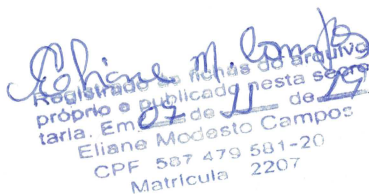 Eliane M. Campos
Registrado as fichas do arquivo
próprio e publicado nesta secre
taria. Em 07 de 11 de 19
Eliane Modesto Campos
CPF 587 479 581-20
Matricula 2207